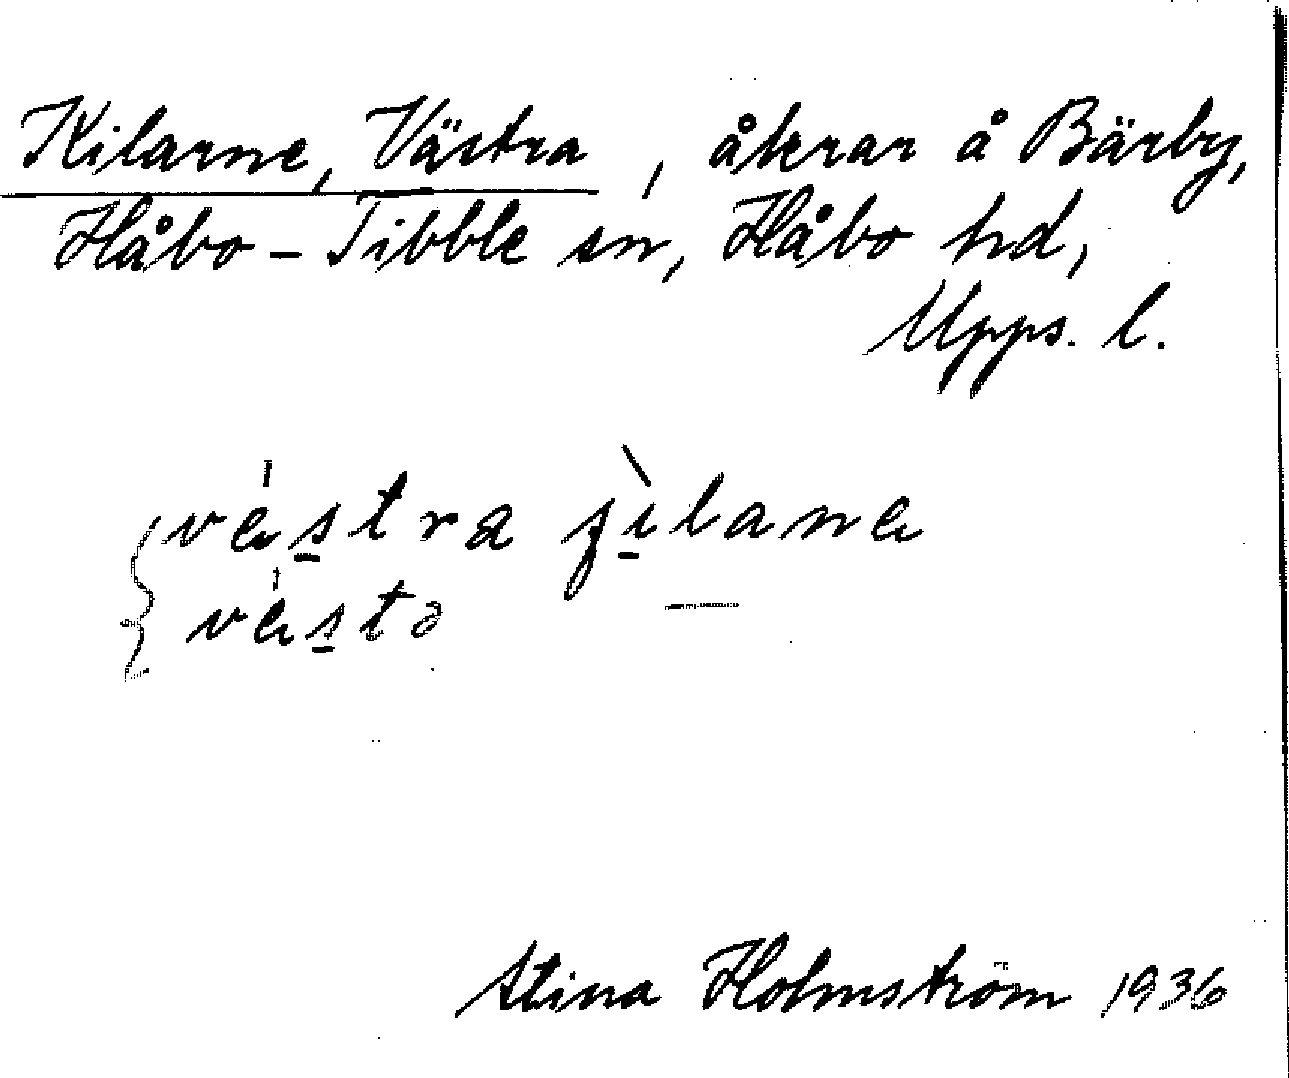 Kilarne, Västra, åkrar å Bärby,
Håbo-Tibble sn, Håbo hd,
Upps. l.
västra ʃilanä
västə —
Stina Holmström 1936